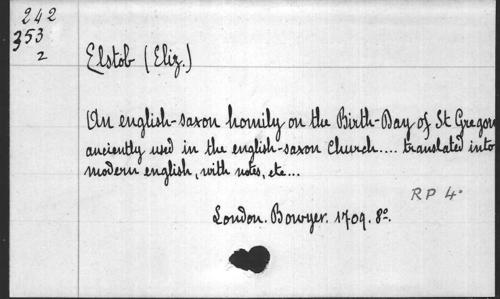 242
353
2
Elstob (Eliz.)
An english-saxon homily on the Birth-Day of St Gregory
anciently used in the english-saxon Church.... translated into
modern english, with notes, etc...
RP 4°
London. Bowyer. 1709. 8º.